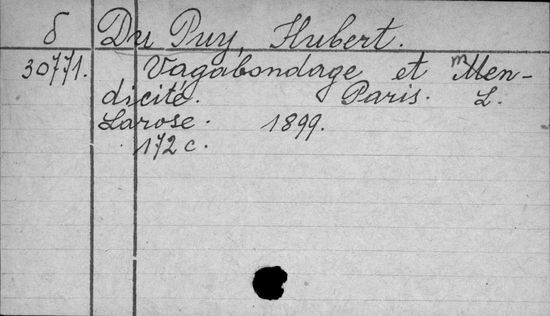 δ Du Puy, Hubert.
30771. Vagabondage et mMen-
dicité. Paris. L.
Larose. 1899.
172 c.